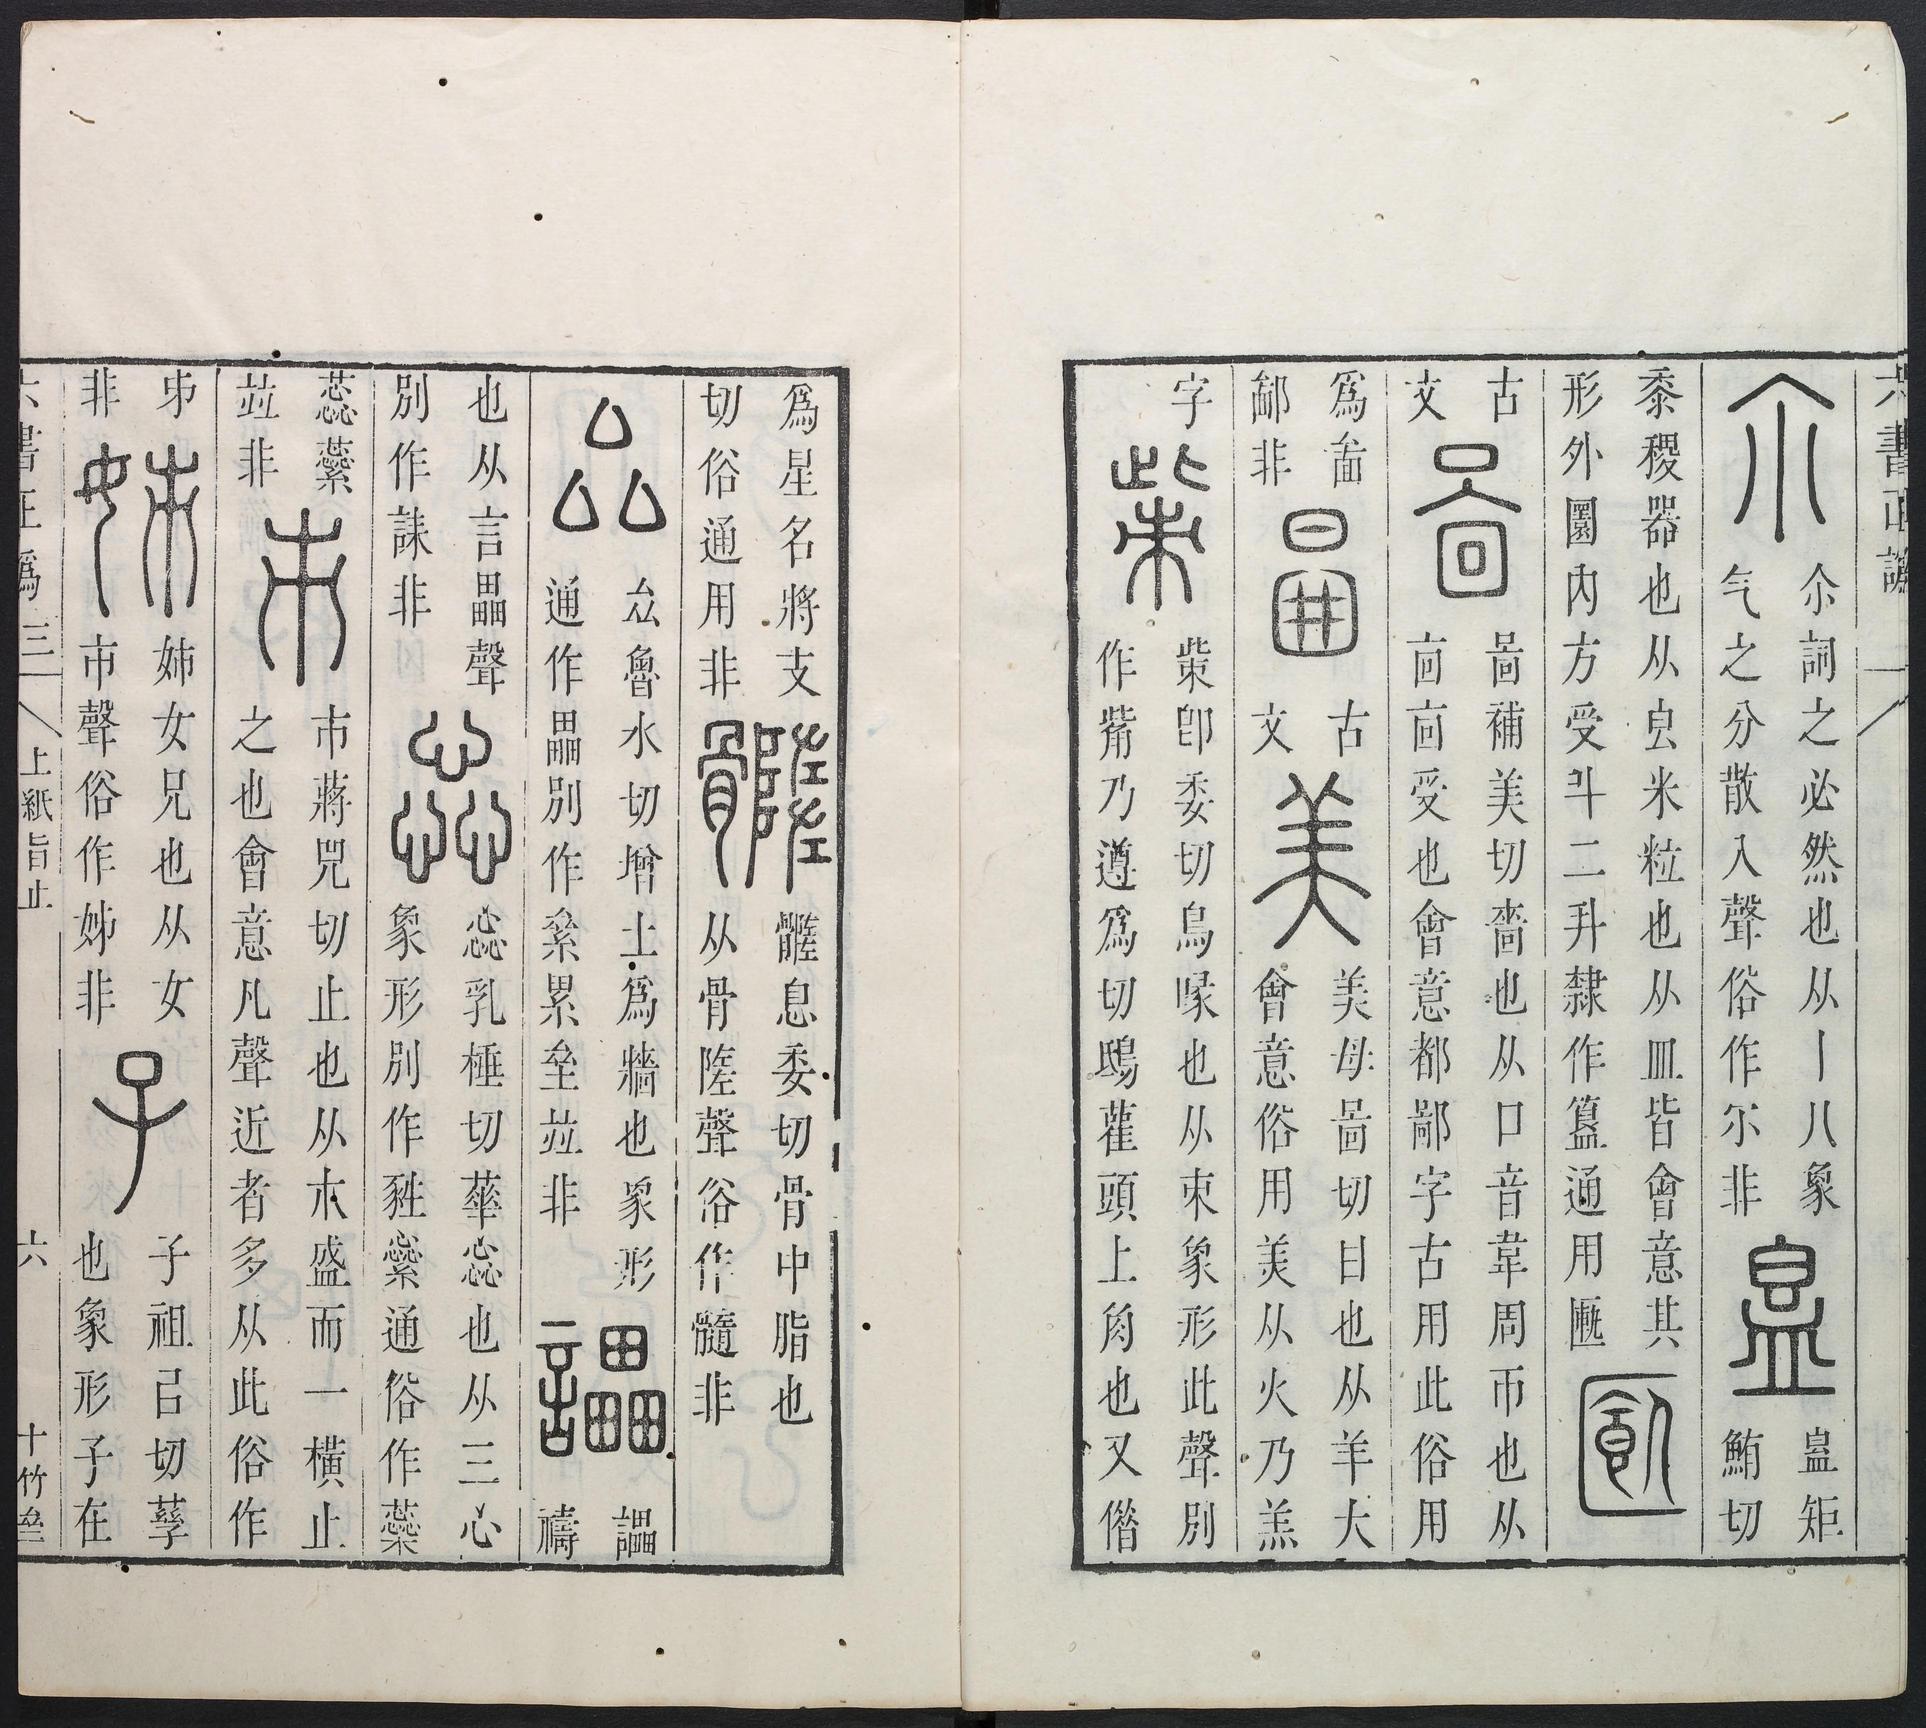 六書正譌
尒
尒詞之必然也从丨八象
气之分散入聲俗作尔非
𥁀
𥁀矩
鮪切
黍稷器也从皀米粒也从皿皆會意其
形外圜內方受斗二升隸作簋通用匭
古
文
啚
啚補美切嗇也从口音韋周帀也从
㐭㐭受也會意都鄙字古用此俗用
爲啚
鄙非
古
文
美
美母啚切甘也从羊大
會意俗用羙从火乃羔
字
㭰
㭰卽委切鳥喙也从朿象形此聲別
作觜乃遵爲切鴟雚頭上角也又僭
爲星名將支
切俗通用非
髓息委切骨中脂也
从骨隓聲俗作髓非
厽
厽魯水切增土爲牆也象形
通作畾別作絫累垒竝非
讄
讄
禱
也从言畾聲
別作誄非
惢
惢乳棰切蘂惢也从三心
象形別作 通俗作蘃
蕊蘂
竝非
巿蔣兕切止也从木盛而一橫止
之也會意凡聲近者多从此俗作
非
姉女兄也从女
巿聲俗作姊非
子
子祖已切孳
也象形子在
六書正譌
三
上紙旨止
六
十竹